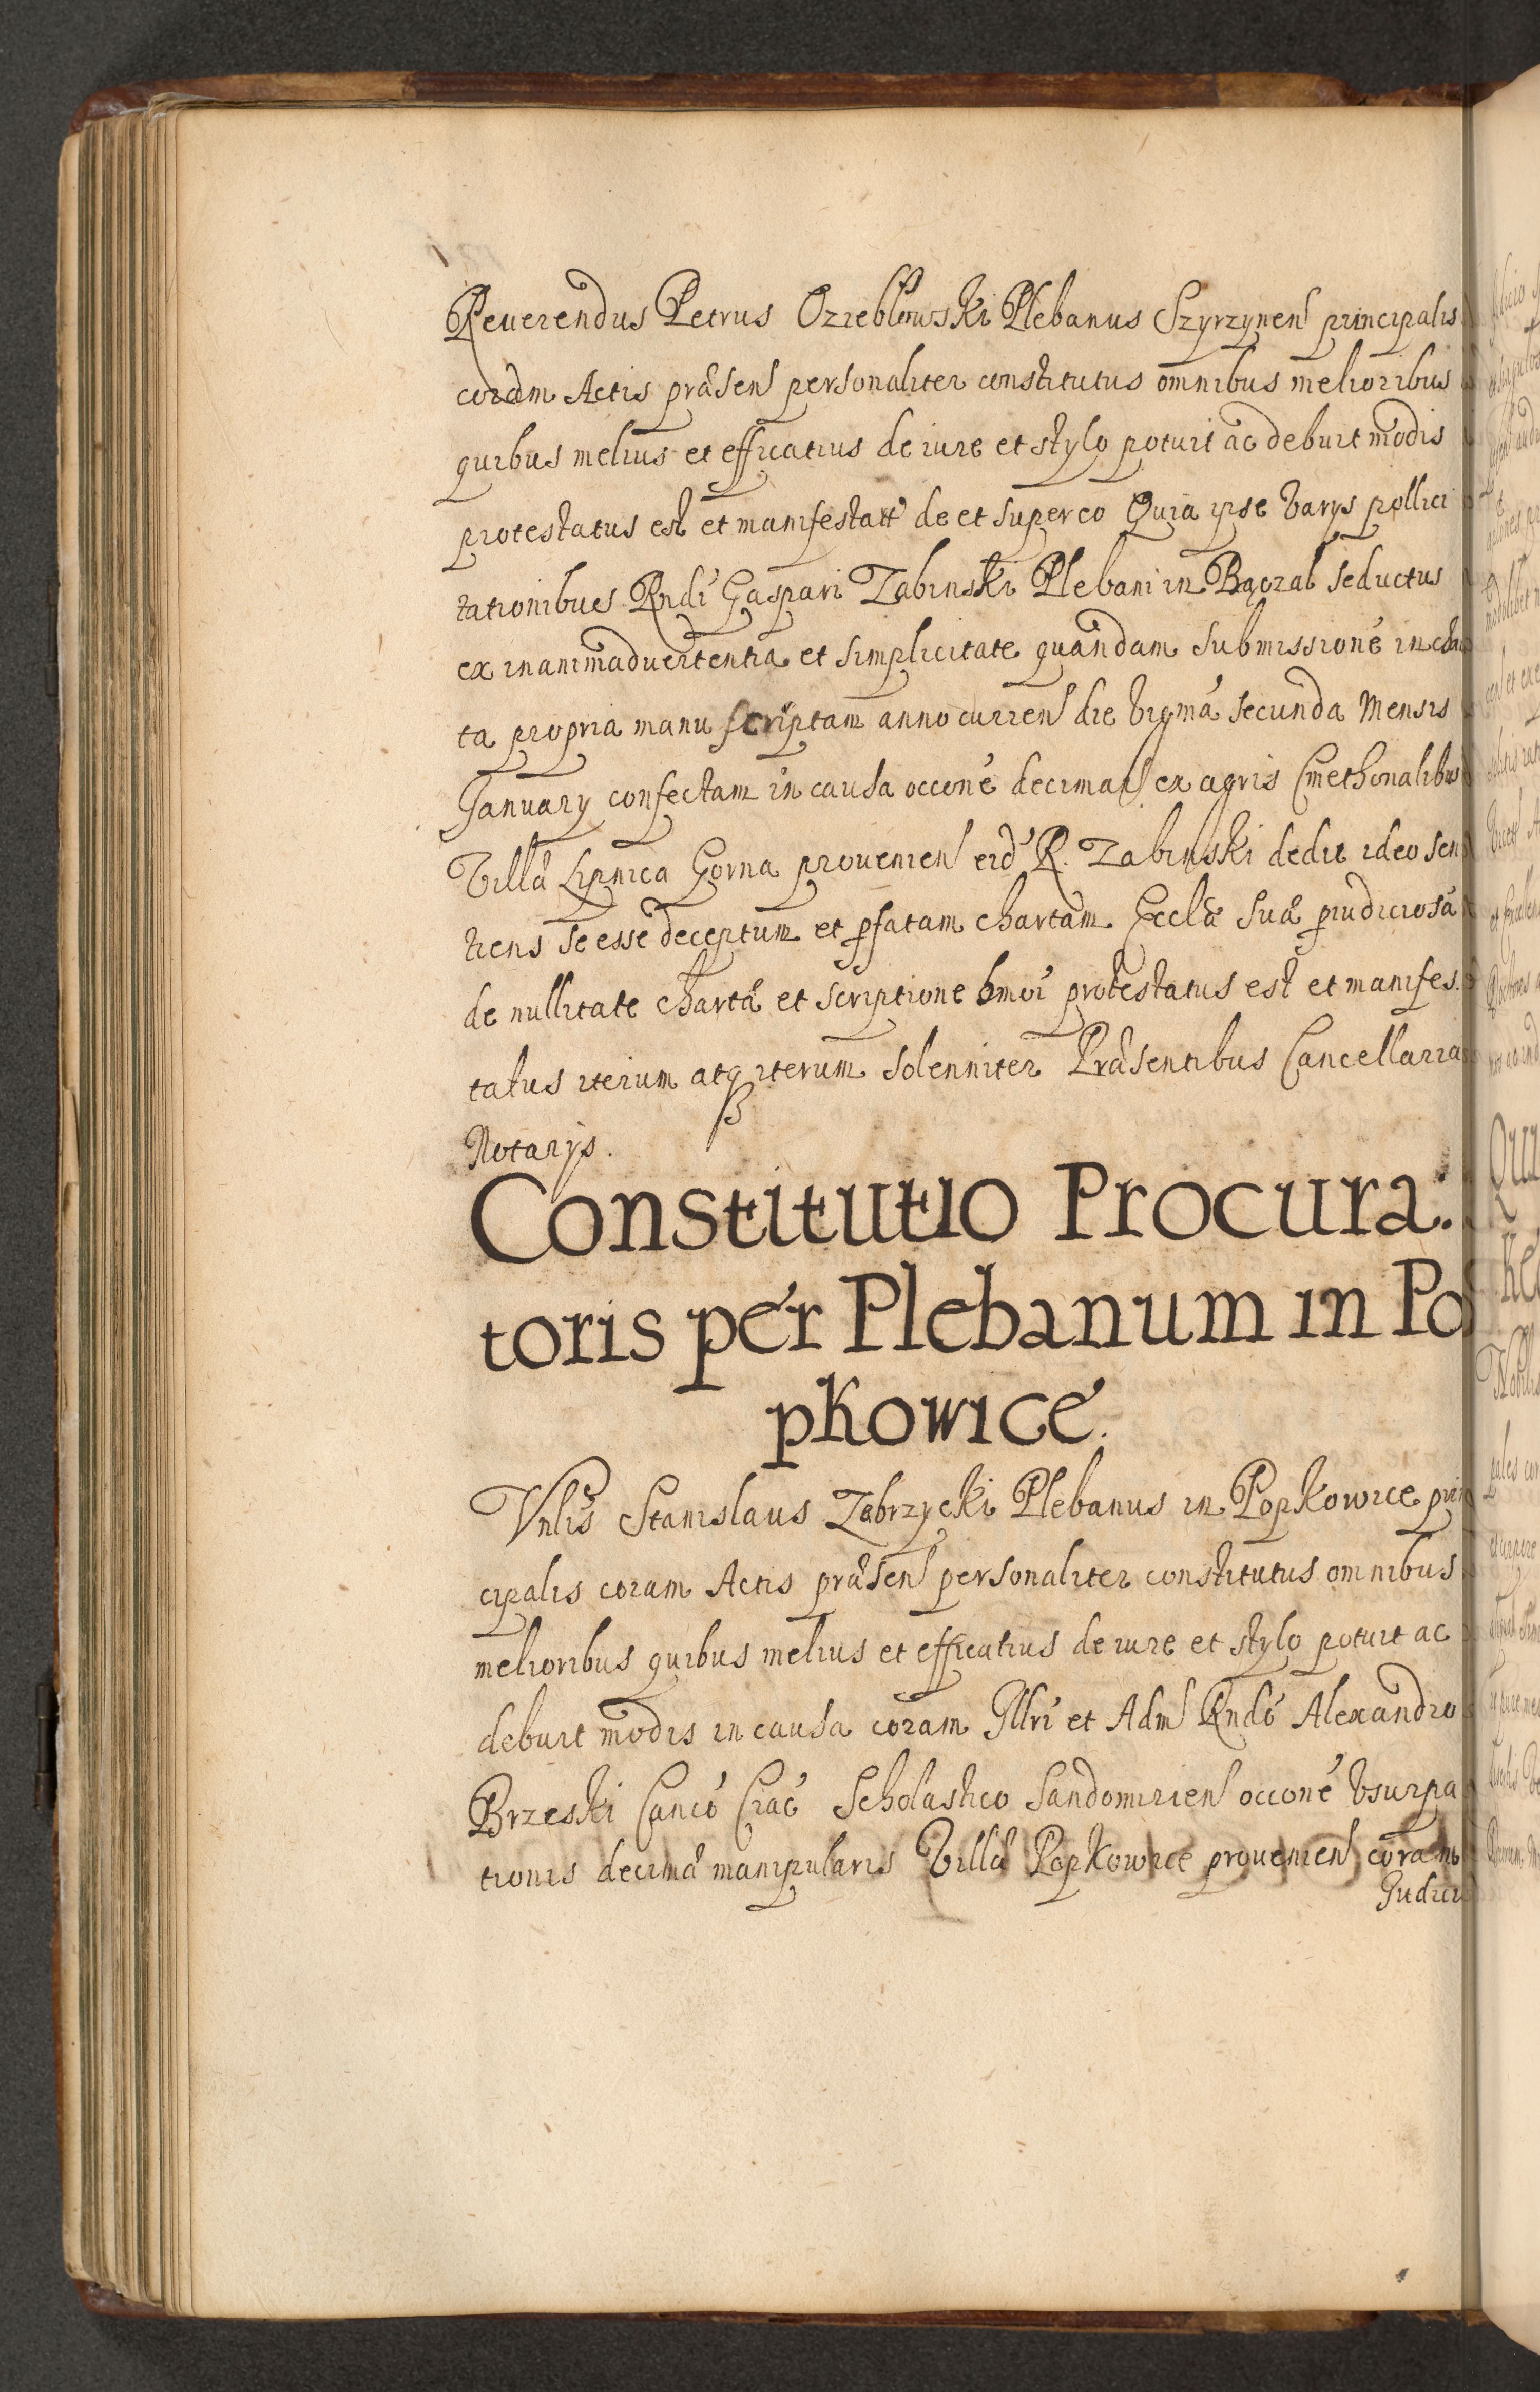 Reuerendus Petrus Ozieblowski Plebanus Szyrzynen principalis
coram Actis præsen personaliter constitutus omnibus melioribus
quibus melius et efficatius de iure et stylo potuit ac debuit modis
protestatus est et manifestatt de et super eo Quia ipse varys pollici
tationibus Rndi Gaspari Zabinski Plebani in Bączal seductus
ex inanimaduertentia et simplicitate quandam submissione in char
ta propria manu scriptam anno curren die vigma secunda Mensis
January confectam in causa occone decimal ex agris Cmethonalibus
Villæ Lipnica Gorna prouenien eid R. Zabinski dedit ideo sen
tiens se esse deceptum et pfatam chartam Ecclæ suæ piudiciosa
de nullitate chartæ et scriptione hmoi protestatus est et manifes.
tatus iterum atq iterum solenniter Præsentibus Cancellaria
Notarys.
Constitutio Procura:
toris per Plebanum in Po
pkowice.
Vnlis Stanislaus Zabrzycki Plebanus in Popkowice prin
cipalis coram Actis præsen personaliter constitutus omnibus
melioribus quibus melius et efficatius de iure et stylo potuit ac
debuit modis in causa coram Illri et Adm Rndo Alexandro
Brzeski Canco Crac Scholastico Sandomirien occone vsurpa
tionis decimæ manipularis Villæ Popkowice prouenien coram
Iudici